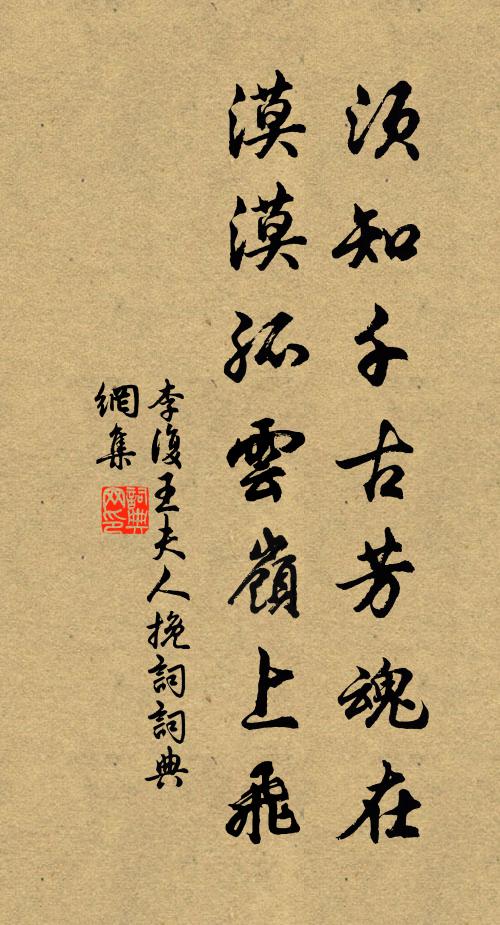 須知千古芳魂在
漠漠孤雲嶺上飛
李復王夫人挽詞詞典
網集
詞典
网印